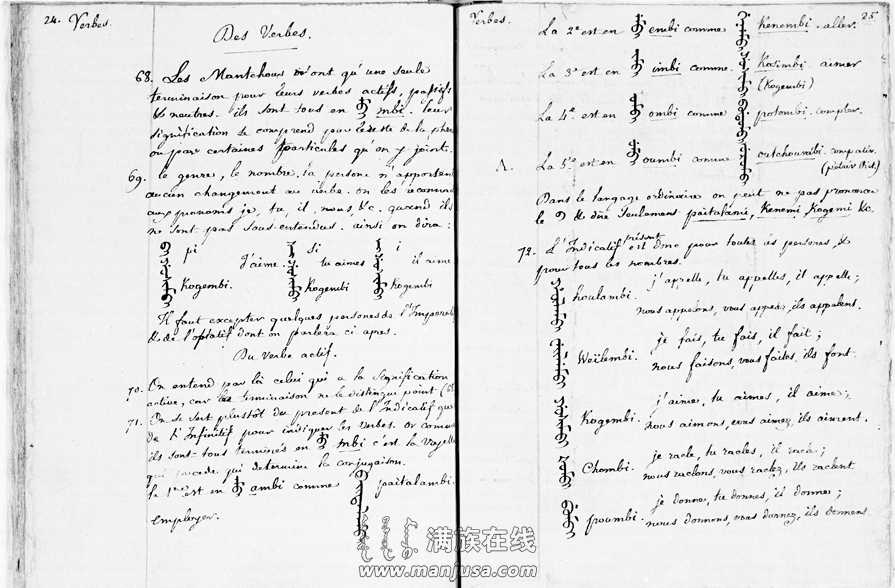 24. Verbes.
Des Verbes.
68. Les Mantchoux n'ont qu'une seule
terminaison pour leurs verbes actifs, passifs
& neutres. ils sont tous en mbi. leur
signification se comprend par le reste de la phra
ou par certaines particules qu'on y joint.
69. le genre, le nombre, la persone n'apportent
aucun changement au verbe. on les reconnoit
aux pronoms je, tu, il, nous, &c. quand ils
ne sont pas sous-entendus. ainsi on dira :
pi si i
j'aime. tu aimes il aime
Kogembi. Kogembi Kogembi
Il faut excepter quelques persones de l'Imperatif
& de l'optatif dont on parlera ci apres.
Du Verbe actif.
70. On entend par là celui qui a la signification
active, car la terminaison ne le distingue point (68
71. On se sert plustôt du present de l'Indicatif que
de l'Infinitif pour indiquer les verbes. or comme
ils sont tous terminés en mbi c'est la voyelle
qui precede qui determine la conjugaison.
la 1ere est en ambi comme paitalambi.
employer.
Verbes. 25.
La 2e est en embi comme Kenembi. aller.
La 3e est en imbi comme Kosimbi aimer
(Kogembi)
La 4e. est en ombi comme potombi. compter.
A. La 5e est en oumbi comme outchoumbi.
Dans le langage ordinaire on peut ne pas prononcer
le & dire seulement paitalami, Kenemi Kogemi &c.
72. L'Indicatif présent est donc pour toutes les persones, &
pour tous les nombres.
houlambi. j'appelle, tu appelles, il appelle ;
nous appelons, vous appelez, ils appelent.
Weïlembi. je fais, tu fais, il fait ;
nous faisons, vous faites, ils font.
Kogembi. j'aime, tu aimes, il aime ;
nous aimons, vous aimez, ils aiment.
Chombi. je racle, tu racles, il racle ;
nous raclons, vous raclez, ils raclent
poumbi. je donne, tu donnes, il donne ;
nous donnons, vous donnez, ils donnent
满族在线
www.manjusa.com